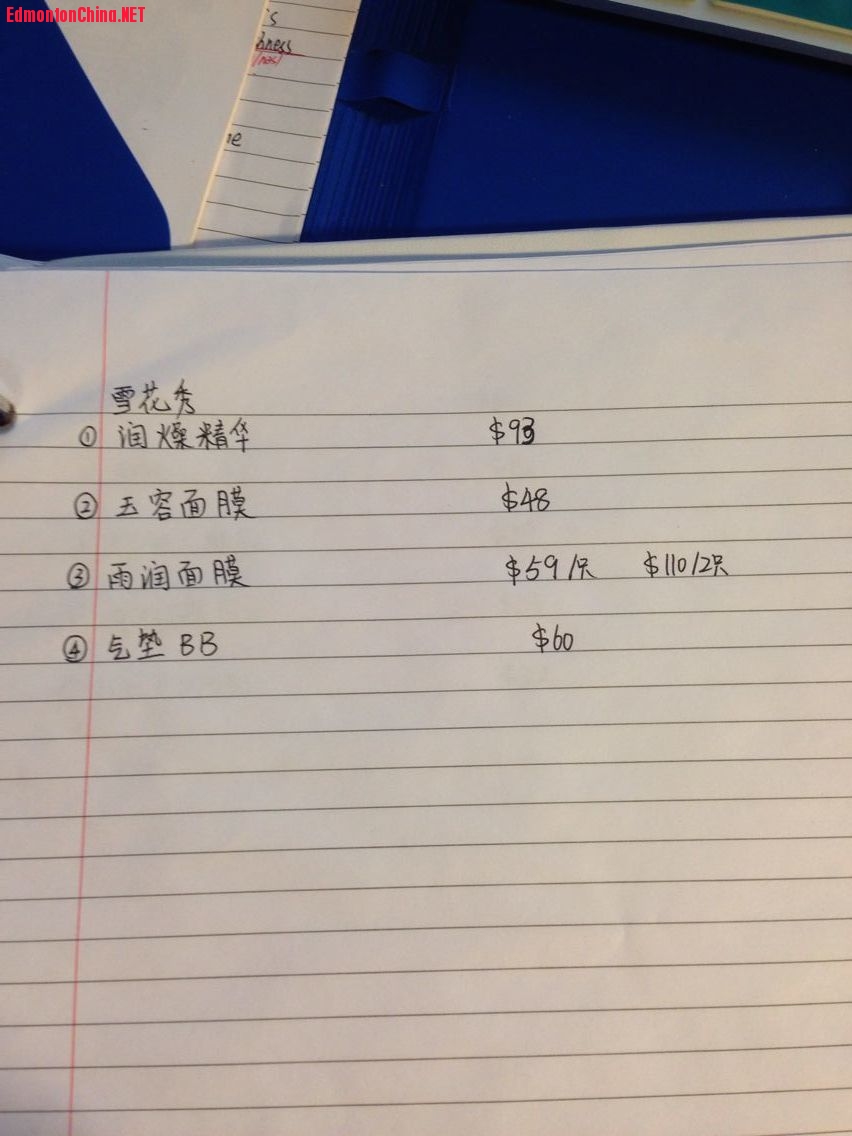 EdmontonChina.NET
's
hness
/nəs/
ne
雪花秀
① 润燥精华 $93
② 玉容面膜 $48
③ 雨润面膜 $59/只 $110/2只
④ 气垫 BB $60